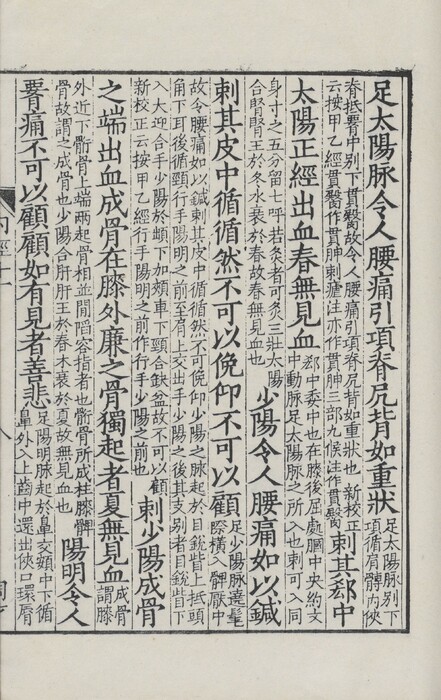 足太陽脉令人腰痛引項脊尻背如重狀
足太陽脉別下
項循肩髆內俠
脊抵腰中別下貫臀故令人腰痛引項脊尻背如重狀也 新校正
云按甲乙經貫臀作貫胂刺瘧注亦作貫胂三部九候注作貫臀
刺其郄中
太陽正經出血春無見血
郄中委中也在膝後屈處膕中央約文
中動脉足太陽脉之所入也刺可入同
身寸之五分留七呼若灸者可灸三壯太陽
合腎腎王於冬水衰於春故春無見血也
少陽令人腰痛如以鍼
刺其皮中循循然不可以俛仰不可以顧
足少陽脉遶髦
際橫入髀厭中
故令腰痛如以鍼刺其皮中循循然不可俛仰少陽之脉起於目銳眥上抵頭
角下耳後循頸行手陽明之前至肩上交出手少陽之後其支別者目銳眥下
入大迎合手少陽於䪼下加頰車下頸合缺盆故不可以顧
新校正云按甲乙經行手陽明之前作行手少陽之前也
刺少陽成骨
之端出血成骨在膝外廉之骨獨起者夏無見血
成骨
謂膝
外近下䯒骨上端兩起骨相並間陷容指者也䯒骨所成柱膝髀
骨故謂之成骨也少陽合肝肝王於春木衰於夏故無見血也
陽明令人
腰痛不可以顧顧如有見者善悲
足陽明脉起於鼻交頞中下循
鼻外入上齒中還出俠口環脣